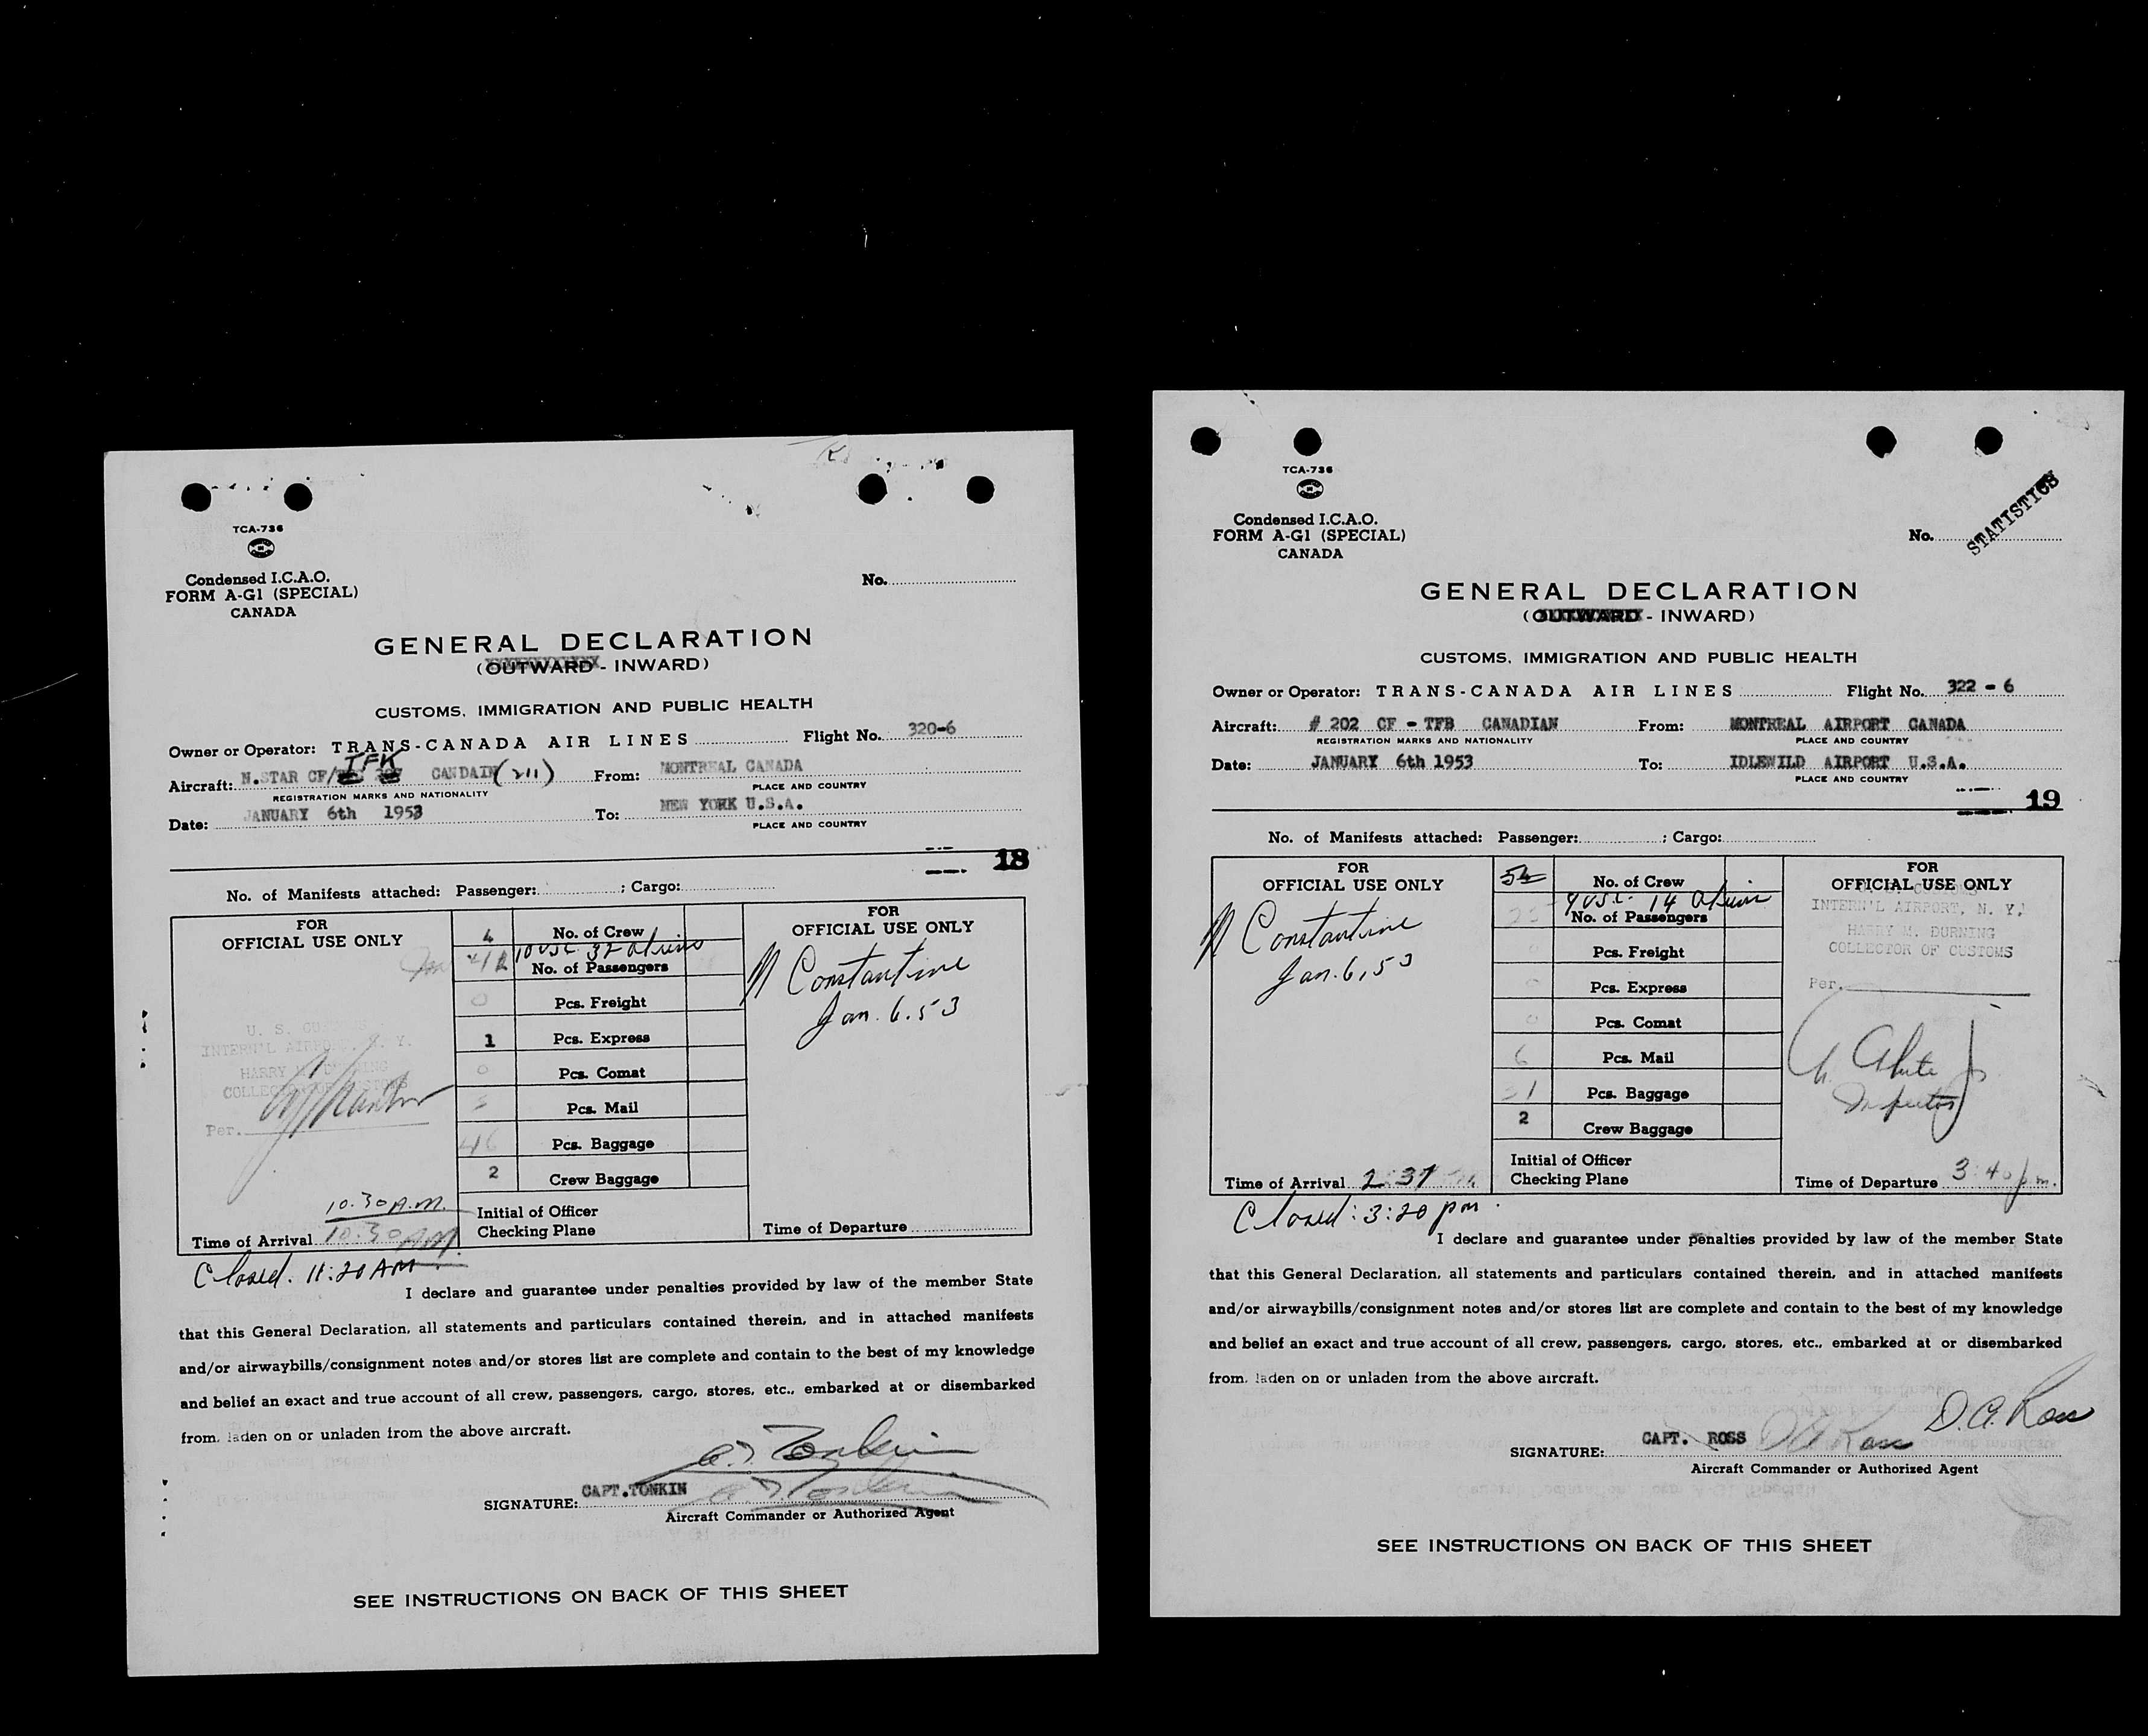 TCA-736
Condensed I.C.A.O.
FORM A-G1 (SPECIAL)
CANADA
No.
GENERAL DECLARATION
(OUTWARD - INWARD)
CUSTOMS, IMMIGRATION AND PUBLIC HEALTH
Owner or Operator: TRANS-CANADA AIR LINES Flight No. 320-6
TFK
Aircraft: N.STAR CF/ CANDAIR (211) From: MONTREAL CANADA
REGISTRATION MARKS AND NATIONALITY PLACE AND COUNTRY
Date: JANUARY 6th 1953 To: NEW YORK U.S.A.
PLACE AND COUNTRY
18
No. of Manifests attached: Passenger: ; Cargo:
FOR
OFFICIAL USE ONLY
U. S. CUSTOMS
INTERN'L AIRPORT, N. Y.
HARRY M. DURNING
COLLECTOR OF CUSTOMS
Per.
10.30 A.M.
Time of Arrival 10.30 AM
Closed. 11:20 AM
4 No. of Crew
10 USC 32 aliens
42 No. of Passengers
0 Pcs. Freight
1 Pcs. Express
0 Pcs. Comat
Pcs. Mail
46 Pcs. Baggage
2 Crew Baggage
Initial of Officer
Checking Plane
FOR
OFFICIAL USE ONLY
N Constantine
Jan. 6.53
Time of Departure
I declare and guarantee under penalties provided by law of the member State
that this General Declaration, all statements and particulars contained therein, and in attached manifests
and/or airwaybills/consignment notes and/or stores list are complete and contain to the best of my knowledge
and belief an exact and true account of all crew, passengers, cargo, stores, etc., embarked at or disembarked
from, laden on or unladen from the above aircraft.
SIGNATURE: CAPT.TONKIN
Aircraft Commander or Authorized Agent
SEE INSTRUCTIONS ON BACK OF THIS SHEET
TCA-736
Condensed I.C.A.O.
FORM A-G1 (SPECIAL)
CANADA
No. STATISTICS
GENERAL DECLARATION
(OUTWARD - INWARD)
CUSTOMS, IMMIGRATION AND PUBLIC HEALTH
Owner or Operator: TRANS-CANADA AIR LINES Flight No. 322 - 6
Aircraft: # 202 CF - TFB CANADIAN From: MONTREAL AIRPORT CANADA
REGISTRATION MARKS AND NATIONALITY PLACE AND COUNTRY
Date: JANUARY 6th 1953 To: IDLEWILD AIRPORT U.S.A.
PLACE AND COUNTRY
19
No. of Manifests attached: Passenger: ; Cargo:
FOR
OFFICIAL USE ONLY
N Constantine
Jan. 6, 53
Time of Arrival 2:37
Closed: 3:20 pm.
No. of Crew
9 USC 14 aliens
No. of Passengers
0 Pcs. Freight
0 Pcs. Express
0 Pcs. Comat
6 Pcs. Mail
31 Pcs. Baggage
2 Crew Baggage
Initial of Officer
Checking Plane
FOR
OFFICIAL USE ONLY
U. S. CUSTOMS
INTERN'L AIRPORT, N. Y.
HARRY M. DURNING
COLLECTOR OF CUSTOMS
Per.
Inspector
Time of Departure 3:40 p.m.
I declare and guarantee under penalties provided by law of the member State
that this General Declaration, all statements and particulars contained therein, and in attached manifests
and/or airwaybills/consignment notes and/or stores list are complete and contain to the best of my knowledge
and belief an exact and true account of all crew, passengers, cargo, stores, etc., embarked at or disembarked
from, laden on or unladen from the above aircraft.
SIGNATURE: CAPT. ROSS D.A. Ross D.A. Ross
Aircraft Commander or Authorized Agent
SEE INSTRUCTIONS ON BACK OF THIS SHEET